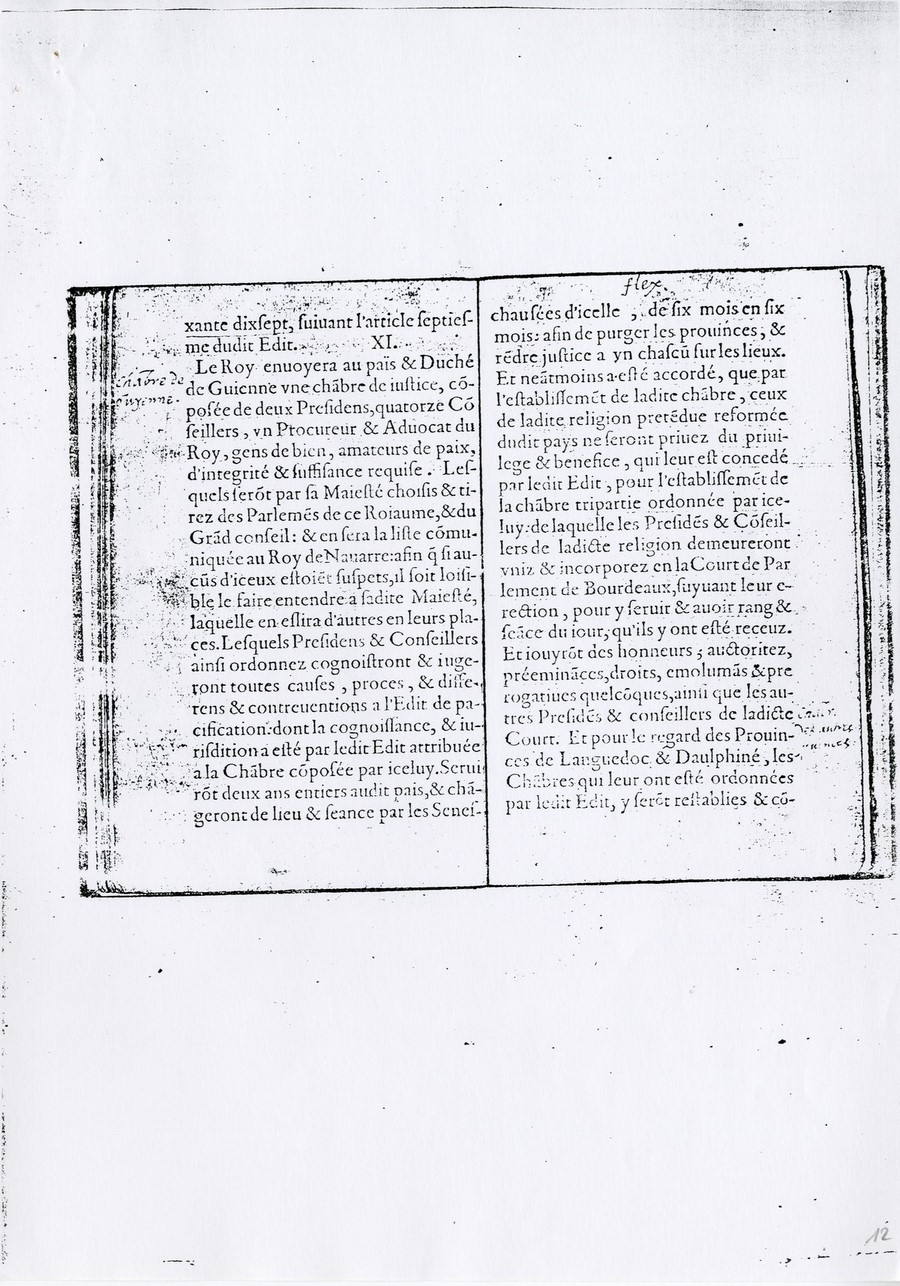 xante dixſept, ſuiuant l'article ſeptieſ-
me dudit Edit. XI.
Le Roy enuoyera au païs & Duché
de Guienne vne chãbre de iuſtice, cõ-
poſée de deux Preſidens,quatorze Cõ
ſeillers , vn Procureur & Aduocat du
Roy, gens de bien, amateurs de paix,
d'integrité & ſuffiſance requiſe . Leſ-
quels ſerõt par ſa Maieſté choiſis & ti-
rez des Parlemẽs de ce Roiaume,& du
Grãd conſeil : & en ſera la liſte cõmu-
niquée au Roy de Nauarre:afin q̃ ſi au-
cũs d'iceux eſtoiẽt ſuſpets,il ſoit loiſi-
ble le faire entendre a ſadite Maieſté,
laquelle en eſlira d'autres en leurs pla-
ces. Leſquels Preſidens & Conſeillers
ainſi ordonnez cognoiſtront & iuge-
ront toutes cauſes , proces , & diffe-
rens & contreuentions a l'Edit de pa-
cification:dont la cognoiſſance, & iu-
riſdition a eſté par ledit Edit attribuée
a la Chãbre cõpoſée par iceluy.Serui
rõt deux ans entiers audit pais,& chã-
geront de lieu & ſeance par les Seneſ-
chãbre de
flex.
chauſées d'icelle , de ſix mois en ſix
mois: afin de purger les prouinces, &
rẽdre juſtice a yn chaſcũ ſur les lieux.
Et neãtmoins a eſté accordé, que par
l'eſtabliſſemẽt de ladite chãbre , ceux
de ladite religion pretẽdue reformée
dudit pays ne ſeront priuez du priui-
lege & benefice , qui leur eſt concedé
par ledit Edit , pour l'eſtabliſſemẽt de
la chãbre tripartie ordonnée par ice-
luy:de laquelle les Preſidẽs & Cõſeil-
lers de ladicte religion demeureront
vniz & incorporez en la Court de Par
lement de Bourdeaux,ſuyuant leur e-
rection , pour y ſeruir & auoir rang &
ſeãce du iour, qu'ils y ont eſté receuz.
Et iouyrõt des honneurs , auctoritez,
préeminãces,droits, emolumãs & pre
rogatiues quelcõques,ainſi que les au-
tres Preſidẽs & conſeillers de ladicte
Court. Et pour le regard des Prouin-
ces de Languedoc & Daulphiné , les
Chãbres qui leur ont eſté ordonnées
par ledit Edit, y ſerõt reſtablies & cõ-
12